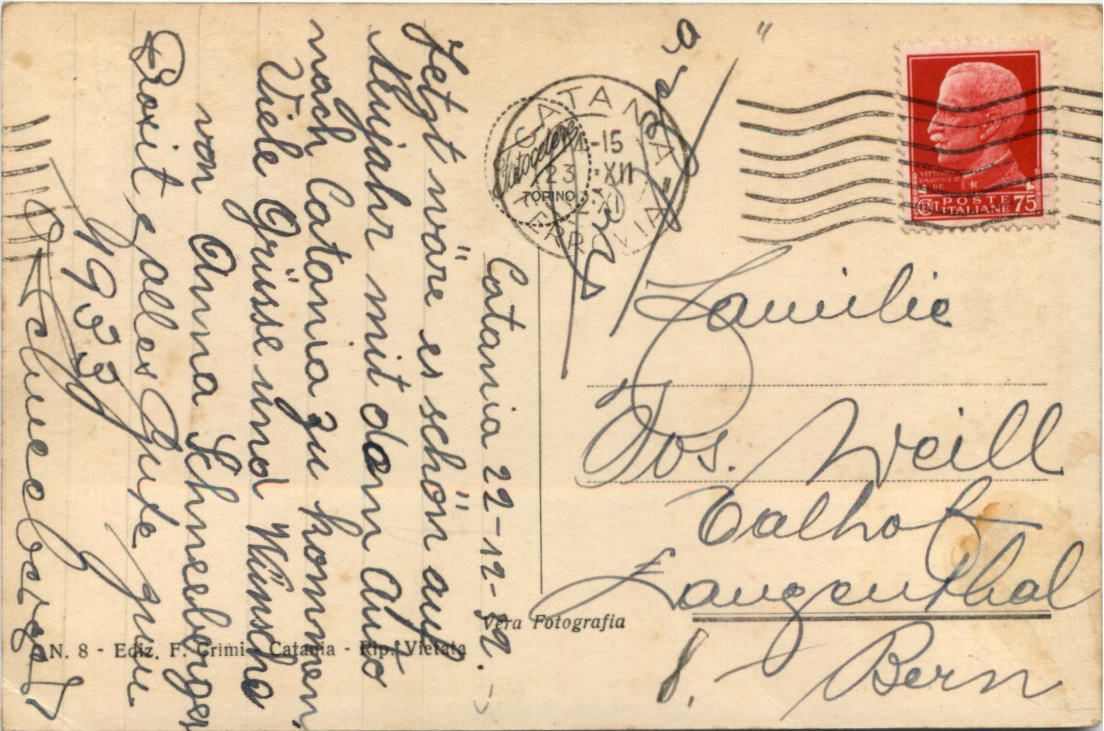 Catania 22-12-32.
Jetzt wäre es schön auf
Neujahr mit dem Auto
nach Catania zu kommen,
Viele Grüsse und Wünsche
von Anna Schneeberger
Prosit & alles Gute zum
1933
Schneeberger
Familie
Jos. Weill
Talhof
Langenthal
Bern
CATANIA
FERROVIA
-15
23 XII
Fotocelere
TORINO
VITTORIO
EMANUELE III
RE
POSTE
ITALIANE
75
Vera Fotografia
N. 8 - Ediz. F. Crimi - Catania - Rip. Vietata